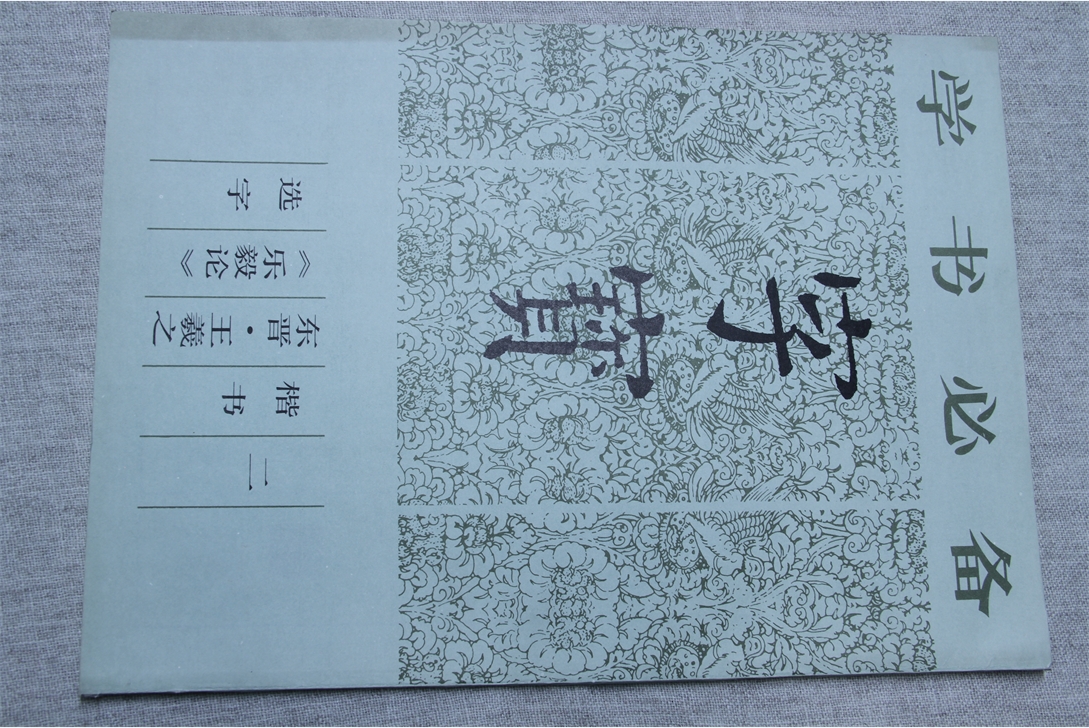 学书必备
字寳
二
楷书
东晋·王羲之
《乐毅论》
选字